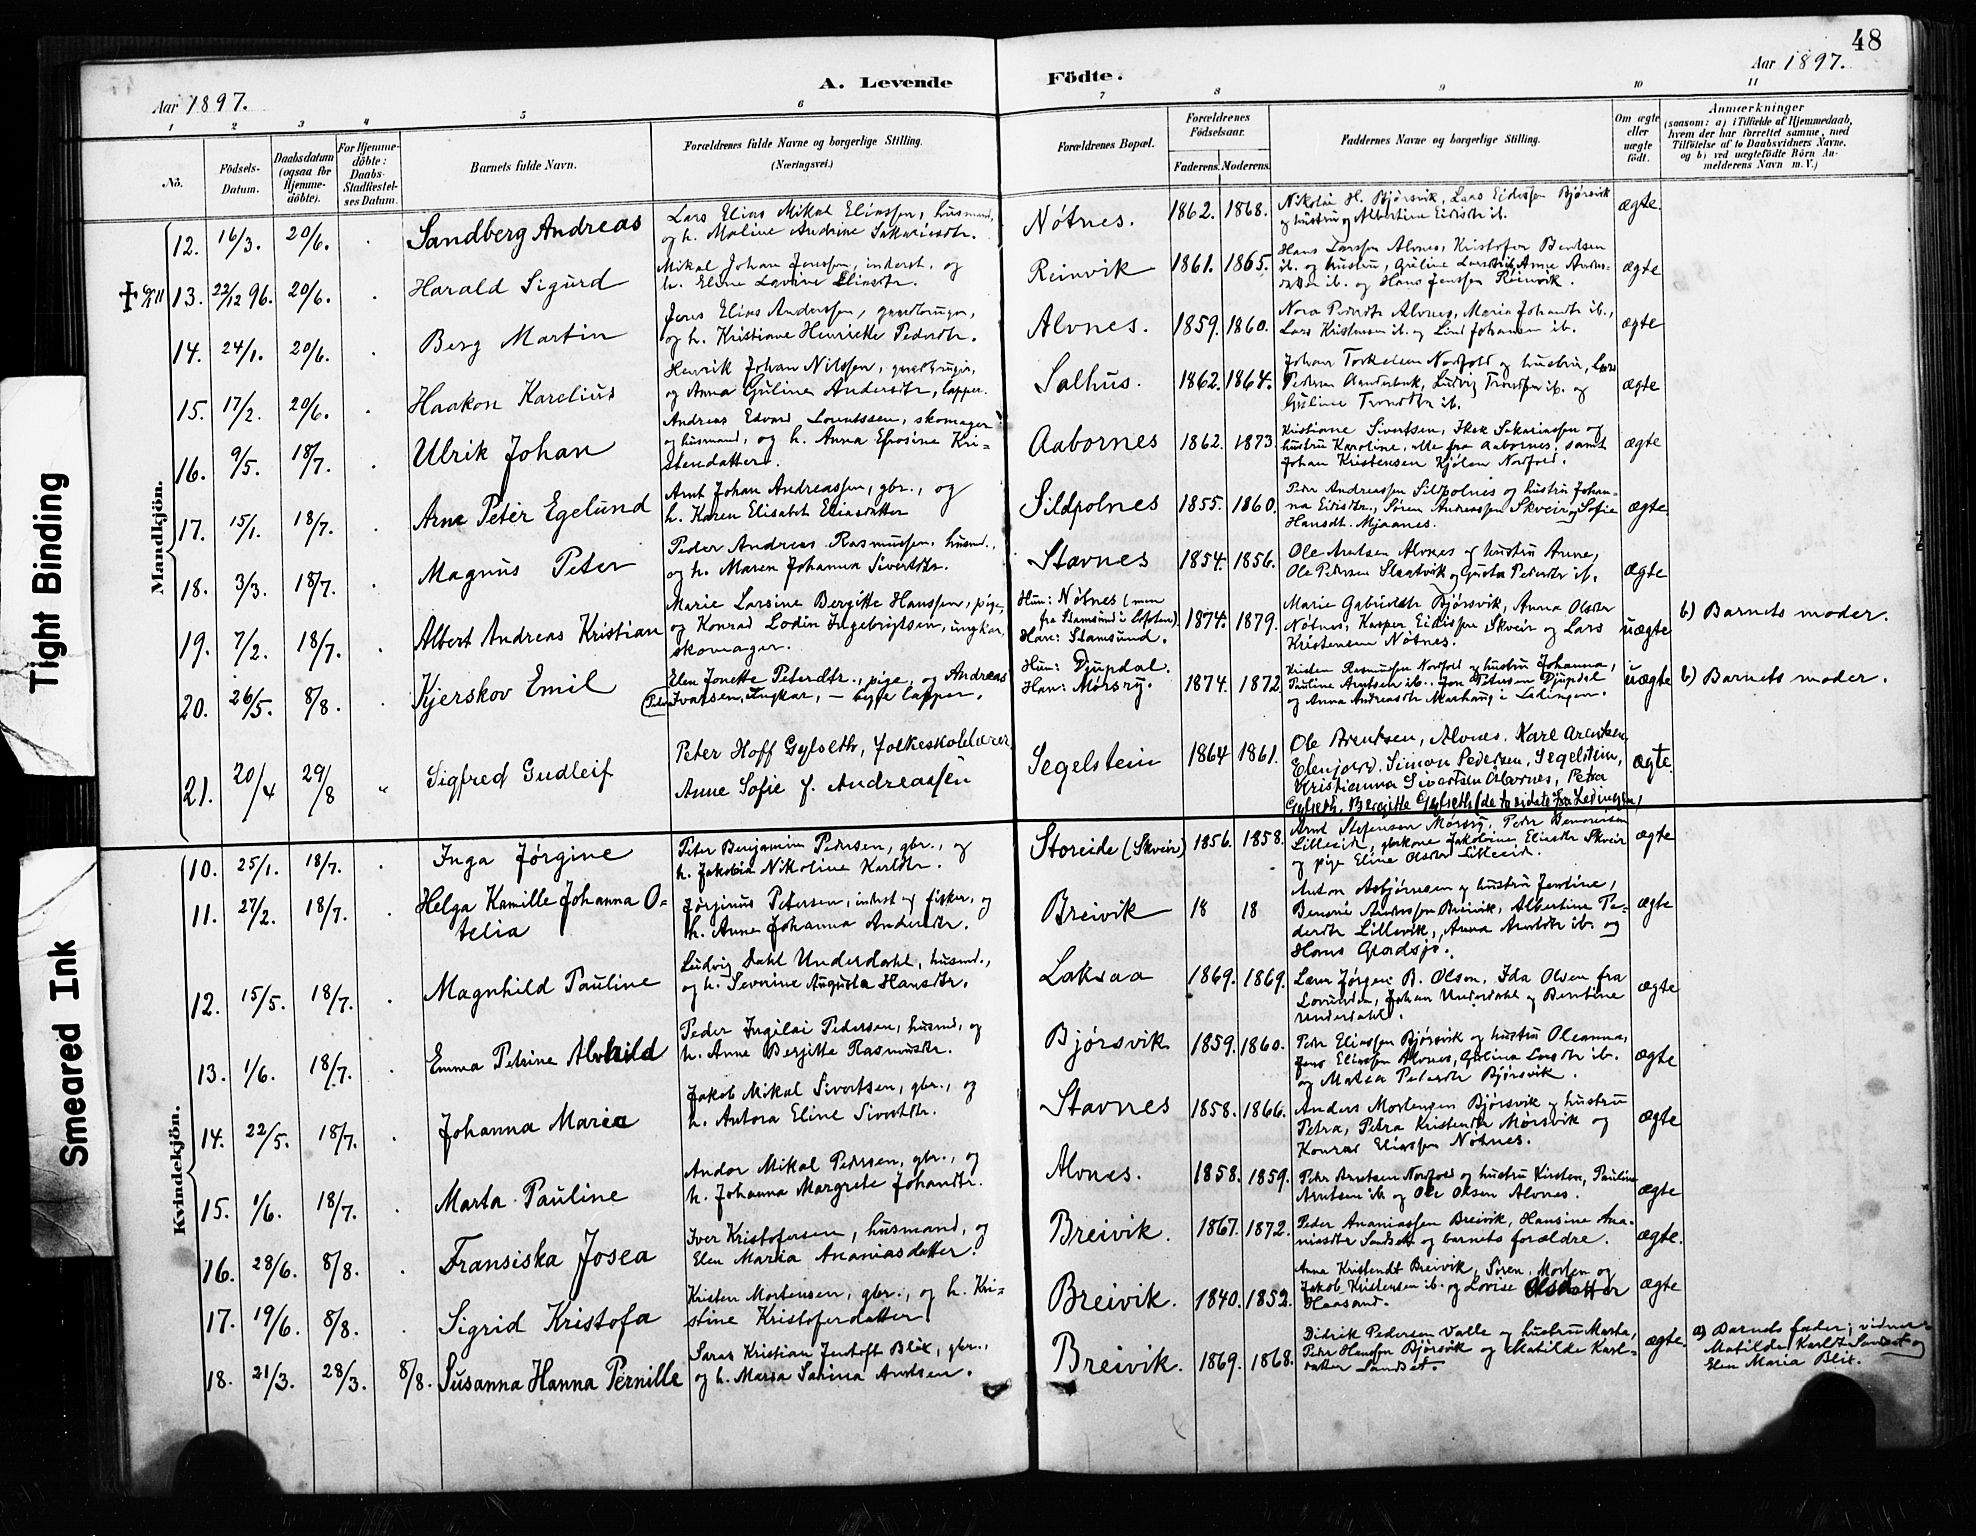 48
Aar 1897.
A. Levende
Födte.
Aar 1897.
1 2 3 4 5 6 7 8 9 10 11
No.
Födsels-Datum.
Daabsdatum (ogsaa for Hjemmedöbte).
For Hjemmedöbte: Daabs-Stadfæstelses Datum.
Barnets fulde Navn.
Forældrenes fulde Navne og borgerlige Stilling. (Næringsvei.)
Forældrenes Bopæl.
Forældrenes Födselsaar.
Faderens. Moderens.
Faddernes Navne og borgerlige Stilling.
Om ægte eller uægte födt.
Anmærkninger
(saasom: a) i Tilfælde af Hjemmedaab, hvem der har forrettet samme, med Tilföielse af to Daabsvidners Navne, og b) ved uægtefödte Börn Anmelderens Navn m. V.)
Mandkjön.
12. 16/3. 20/6. Sandberg Andreas
Lars Elias Mikal Eliassen, husmand,
og h. Maline Andrine Sakariasdtr.
Nötnes. 1862. 1868.
Nikolai H. Bjørsvik, Lars Eidissen Bjørsvik
og hustru og Albertine Eidisdtr ib.
ægte.
13. 22/12 96. 20/6. Harald Sigurd
Mikal Johan Jenssen, inderst, og
h. Eline Lovine Eliasdtr.
Reinvik 1861. 1865.
Hans Larssen Alvnes, Kristofer Bentsen
ib. og hustru, Guline Larsdtr, Anne Anders-
datter ib. og Hans Jenssen Reinvik.
ægte
14. 24/1. 20/6. Berg Martin
Jens Elias Anderssen, gaardbruger,
og h. Kristiane Henrikke Pedersdtr.
Alvnes. 1859. 1860.
Nora Pedersdtr Alvnes, Maria Johansdtr ib.,
Lars Kristensen ib. og Lind Johansen ib.
ægte
15. 17/2. 20/6. Haakon Karelius
Henrik Johan Nilssen, gaardbruger,
og Anna Guline Andersdtr, lapper.
Salhus. 1862. 1864.
Johan Torkelsen Nordfold og hustru, Lars
Pedersen Aanderbak, Ludvig Trondsen ib. og
Guline Trondsdtr ib.
ægte
16. 9/5. 18/7. Ulrik Johan
Andreas Edvard Lorentssen, skomager
og husmand, og h. Anna Efrosine Kri-
stensdatter.
Aabornes 1862. 1873.
Kristiane Sivertsen, Isak Sakariassen og
hustru Karoline, alle fra Aabornes, samt
Johan Kristensen Kjölen Nordfold.
ægte
17. 15/1. 18/7. Arne Peter Egelund
Arnt Johan Andreassen, gbr., og
h. Karen Elisabet Eliasdatter
Sildpolnes 1855. 1860.
Peder Andreassen Sildpolnes og hustru Johan-
na Eidisdtr., Søren Andreassen Skveir og Sofie
Hansdt. Mjaanes.
ægte.
18. 3/3. 18/7. Magnus Peter
Peder Andreas Rasmussen, husmd.,
og h. Maren Johanna Sivertsdtr.
Stavnes 1854. 1856.
Ole Arntsen Alvnes og hustru Anne,
Ole Pedersen Slaatvik og Gusta Pedersdtr ib.
ægte
19. 7/2. 18/7. Albert Andreas Kristian
Marie Larsine Bergitte Hanssen, pige,
og Konrad Lodin Ingebrigtsen, ungkar,
skomager.
Hun: Nötnes (men
fra Stamsund i Lofoten).
Han: Stamsund.
1874. 1879.
Marie Gabrielsdtr Bjørsvik, Anna Olsdtr
Nötnes, Kasper Eidissen Skveir og Lars
Kristensen Nötnes.
uægte
b) Barnets moder.
20. 26/5. 8/8. Kjerskov Emil
Elen Jonette Petersdtr., pige, og Andreas
(Peder) Ivarsen, Ungkar, – begge lapper.
Hun: Djupdal.
Han: Mørsry.
1874. 1872.
Kristen Rasmussen Nordfold og hustru Johanna,
Pauline Arntsen ib., Jon Petersen Djupdal
og Anna Andreasdtr Marhaug i Lødingen.
uægte
b) Barnets moder.
21. 20/4 29/8 " Sigfred Gudleif
Peter Hoff Gylseth, folkeskolelærer,
Anne Sofie f. Andreassen
Segelstein 1864 1861.
Ole Arentsen, Alvnes. Karl Arentsen,
Elenjord. Simon Pedersen, Segelstein,
Kristianna Sivertsen Alvornes, Petra
Gylseth, Bergitte Gylseth (de to sidste fra Lødingen)
ægte.
Kvindekjön.
10. 25/1. 18/7. Inga Jørgine
Peter Benjamin Pedersen, gbr., og
h. Jakobia Nikoline Karlsdtr.
Storeide (Skveir) 1856. 1858.
Arnt Stefensen Mørsry, Peder Benoniesen
Lilleeid, gbrkone Jakobine Eliasdtr Skveir
og pige Eline Olsdtr Lilleeid.
ægte
11. 27/2. 18/7. Helga Kamille Johanna O-
telia
Jørginus Petersen, inderst og fisker, og
h. Anne Johanna Andersdtr.
Breivik 18 18
Anton Asbjørnsen og hustru Jentine,
Benoni Anderssen Breivik, Albertine Pe-
dersdtr Lillevik, Anna Arntsdtr ib. og
Hans Gladsjø.
ægte
12. 15/5. 18/7. Magnhild Pauline
Ludvig Dahl Underdahl, husmd.,
og h. Severine Augusta Hansdtr.
Laksaa 1869. 1869.
Lærer Jørgen B. Olsen, Ida Olsen fra
Lovunden, Johan Underdahl og Bentine
Underdahl.
ægte
13. 1/6. 18/7. Emma Petrine Alvhild
Peder Ingilai Pedersen, husmd, og
h. Anne Bergitte Rasmusdtr.
Bjørsvik 1859. 1860.
Peter Eliassen Bjørsvik og hustru Oleanna,
Jens Eliassen Alvnes, Gulina Larsdtr ib.
og Matea Pedersdtr Bjørsvik.
ægte
14. 22/5. 18/7. Johanna Maria
Jakob Mikal Sivertsen, gbr., og
h. Antora Eline Sivertsdtr.
Stavnes 1858. 1866.
Anders Mortensen Bjørsvik og hustru
Petra, Petra Kristensdtr Mørsvik og
Konrad Eliassen Nötnes.
ægte
15. 1/6. 18/7. Marta Pauline
Andor Mikal Pedersen, gbr., og
h. Johanna Margrete Johansdtr.
Alvnes. 1858. 1859.
Peter Arntsen Nordfold og hustru Kirsten, Pauline
Arntsen ib. og Ole Olsen Alvnes.
ægte
16. 28/6. 8/8. Fransiska Josea
Iver Kristofersen, husmand, og
Elen Maria Ananiasdatter.
Breivik. 1867. 1872.
Peder Ananiassen Breivik, Hansine Ana-
niasdtr Sandset og barnets forældre.
ægte.
17. 19/6. 8/8. Sigrid Kristofa
Kristen Mortensen, gbr., og h. Kri-
stine Kristofersdatter.
Breivik. 1840. 1852.
Anna Kristensdt Breivik, Søren, Morten og
Jakob Kristensen ib. og Lovise Olsdatter
Haasand.
ægte
18. 21/3. 28/3. 8/8. Susanna Hanna Pernille
Saras Kristian Jentoft Blix, gbr.,
og h. Maria Sarina Arntsen.
Breivik. 1869. 1868.
Didrik Pedersen Valle og hustru Marta,
Peter Hanssen Bjørsvik og Matilde Karls-
datter Sandset.
ægte.
a) Barnets fader; vidner:
Matilde Karlsdt Sandset og
Elen Maria Blix.
Tight Binding
Smeared Ink